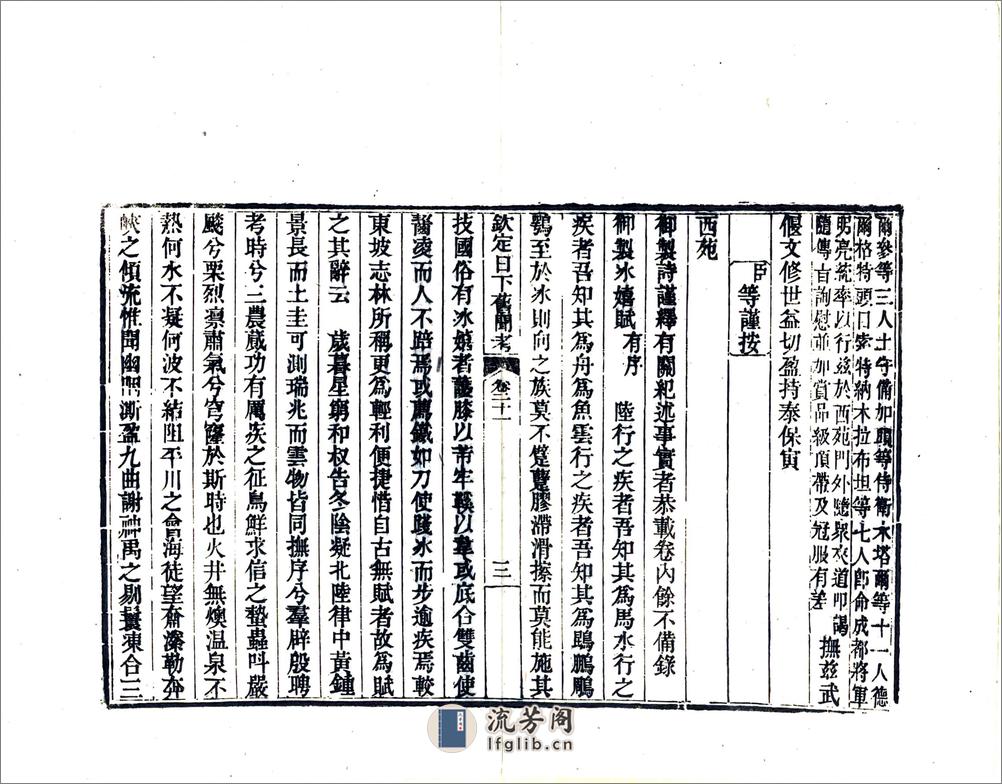 爾參等三人土守備加頭等侍衛木塔爾等十一人德
爾格特頭目索特納木拉布坦等七人卽命成都將軍
明亮統率以行茲於西苑門外隨衆夾道叩謁
隨傳旨詢慰並加賞品級頂帶及冠服有差　撫茲武
偃文修世益切盈持泰保寅
臣等謹按
西苑
御製詩謹擇有關紀述事實者恭載卷內餘不備錄
御製冰嬉賦有序　陸行之疾者吾知其為馬水行之
疾者吾知其為舟為魚雲行之疾者吾知其為鵾鵬鵰
鶚至於冰則向之族莫不躄躠膠滯滑擦而莫能施其
欽定日下舊聞考　卷二十一　三
技國俗有冰嬉者護膝以芾牢鞵以韋或底合雙齒使
齧凌而人不踣焉或薦鐵如刀使踐冰而步逾疾焉較
東坡志林所稱更為輕利便捷惜自古無賦者故為賦
之其辭云　歲暮星窮和叔告冬陰凝北陸律中黃鍾
景長而土圭可測瑞兆而雲物皆同撫序兮羣辟殷聘
考時兮三農蕆功有厲疾之征鳥鮮求信之蟄蟲吁嚴
飈兮栗烈凛肅氣兮穹窿於斯時也火井無燠温泉不
熱何水不凝何波不結阻平川之會海徒望奫潫勒奔
峽之傾流惟聞幽咽澌盈九曲謝神禹之剔鬟凍合三
流芳阁
lfglib.cn